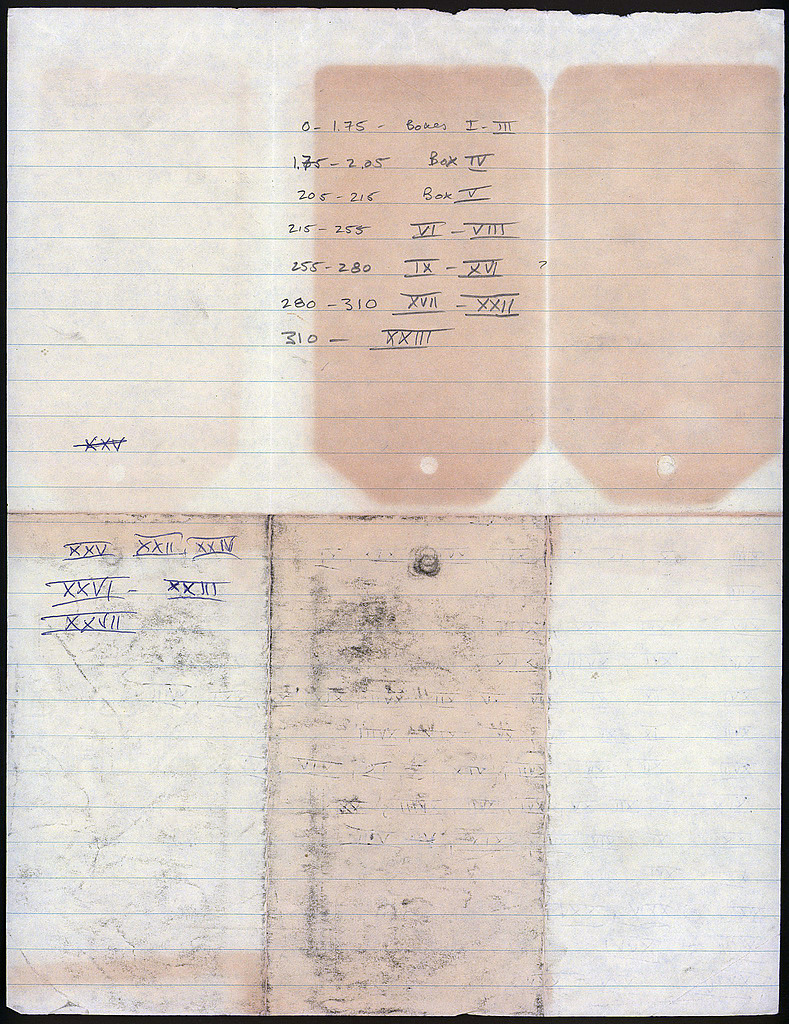 0 - 1.75 - Boxes I - III
1.75 - 2.05 Box IV
205 - 215 Box V
215 - 255 VI - VIII
255 - 280 IX - XVI ?
280 - 310 XVII - XXII
310 - XXIII
XXV
XXV XXII, XXIV
XXVI - XXIII
XXVII